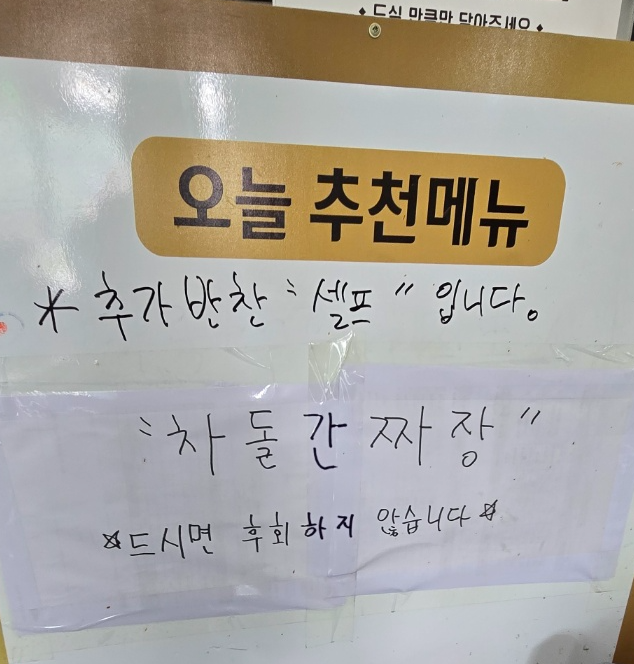 ♦ 드실 만큼만 담아주세요 ♦
오늘 추천메뉴
* 추가반찬 "셀프" 입니다.
"차돌간짜장"
☆드시면 후회하지 않습니다☆